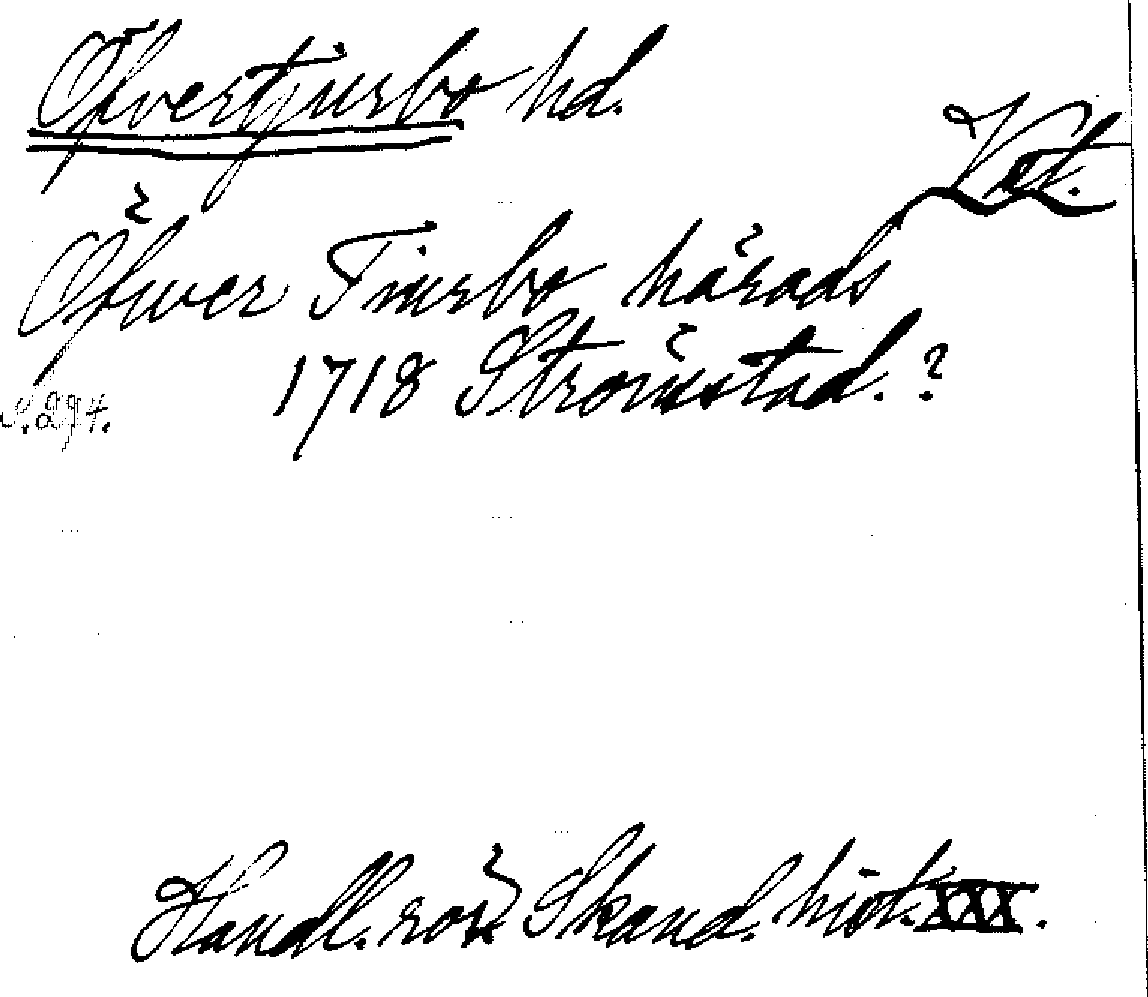 Öfvertjurbo hd.
Vstl.
Öfwer Tiurbo härads
1718 Strömstad.?
S. 294.
Handl. rör. Skand. hist. XXX.